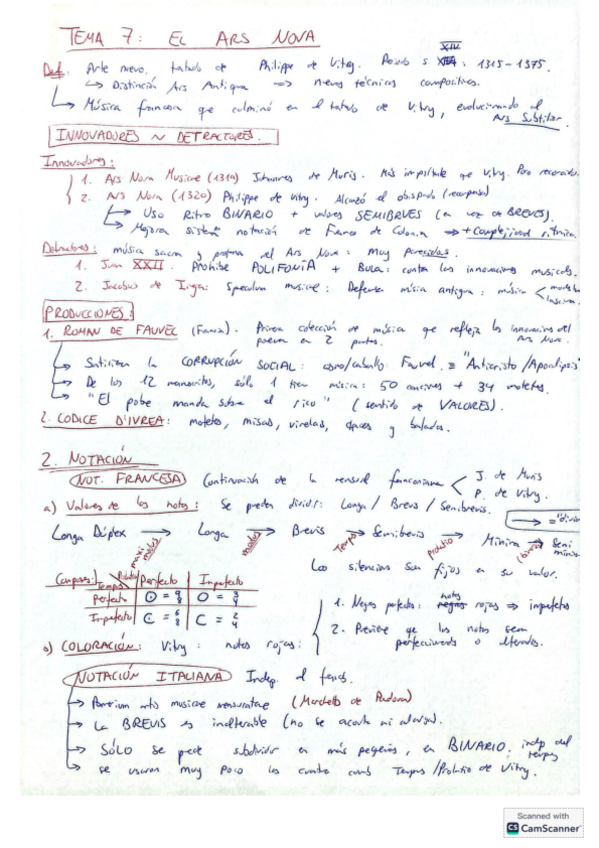 TEMA 7: EL ARS NOVA
XIV
Def. Arte nuevo. tratado de Philippe de Vitry. Poudo s. : 1315-1375.
Distinción Ars Antiqua → nuevas técnicas compositivas.
Música francesa que culminó en el tratado de Vitry, evolucionando al
Ars Subtilior.
INNOVADORES ~ DETRACTORES.
Innovadores:
1. Ars Nova Musicae (1319) Johannes de Muris. Más importante que Vitry. Poco reconocido.
2. ARS NOVA (1320) Philippe de Vitry. Alcanzó el obispado (recompensa)
Uso Ritmo BINARIO + valores SEMIBREVES (en vez de BREVES).
Mejora sistema notación de Franco de Colonia → + complejidad rítmica.
Detractores: música sacra y profana del Ars Nova: muy parecidas.
1. Juan XXII. Prohíbe POLIFONÍA + Bula: contra las innovaciones musicales.
2. Jacobus de Lieja: Speculum musicae: Defensa música antigua: música
lasciva.
PRODUCCIONES:
1. ROMAN DE FAUVEL (Francia). Primera colección de música que refleja las innovaciones del
Ars Nova.
poema en 2 partes.
Satiriza la CORRUPCIÓN SOCIAL: asno/caballo: Fauvel. = "Anticristo/Apocalipsis"
De los 12 manuscritos, sólo 1 tiene música: 50 canciones + 34 motetes.
"El pobre manda sobre el rico" (sentido de VALORES).
2. CODICE D'IVREA: motetes, misas, virelais, chaces y baladas.
2. NOTACIÓN
NOT. FRANCESA Continuación de la mensural franconiana
J. de Muris
P. de Vitry.
a) Valores de las notas: Se pueden dividir: Longa / Brevis / Semibrevis.
→ = "divis
Longa Dúplex → Longa → Brevis → Semibrevis → Mínima → Semi
mínima
maxi modus modus Tempus prolatio
Los silencios son fijos en su valor.
Compases: Tempus Prolatio Perfecto Imperfecto
Perfecto ⊙ = 9/8 O = 3/4
Imperfecto C = 6/8 C = 2/4
1. Negras perfectas: notas rojas ⇒ imperfectas
2. Previene que las notas sean
perfeccionadas o alteradas.
b) COLORACIÓN: Vitry: notas rojas:
NOTACIÓN ITALIANA Indep. al francés.
Pomerium artis musicae mensuratae (Marchetto de Padova)
La BREVIS es inalterable (no se acorta ni alarga).
SÓLO se puede subdividir en más pequeños, en BINARIO. indep del
tempus
se usaron muy poco los cuatro comb Tempus/Prolatio de Vitry.
Scanned with
CS CamScanner